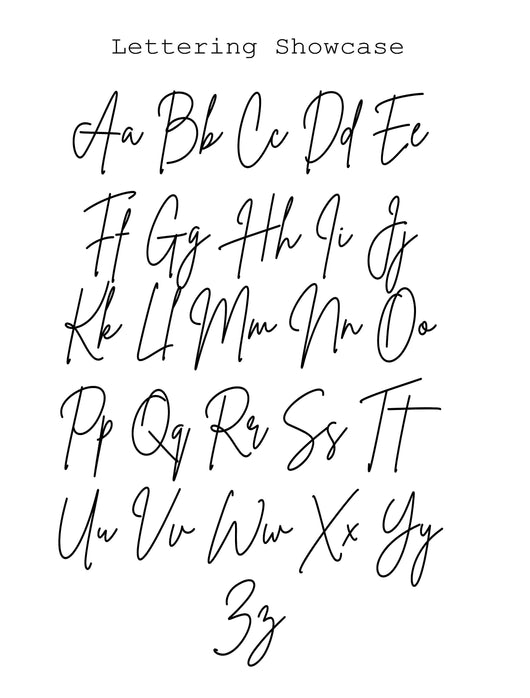 Lettering Showcase
Aa Bb Cc Dd Ee
Ff Gg Hh Ii Jj
Kk Ll Mm Nn Oo
Pp Qq Rr Ss Tt
Uu Vv Ww Xx Yy
Zz